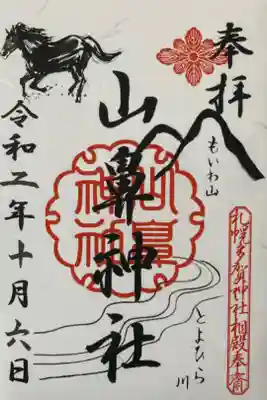 奉拝
もいわ山
山鼻神社
とよひら川
令和二年十月六日
札幌多賀神社相殿奉斎
山鼻神社